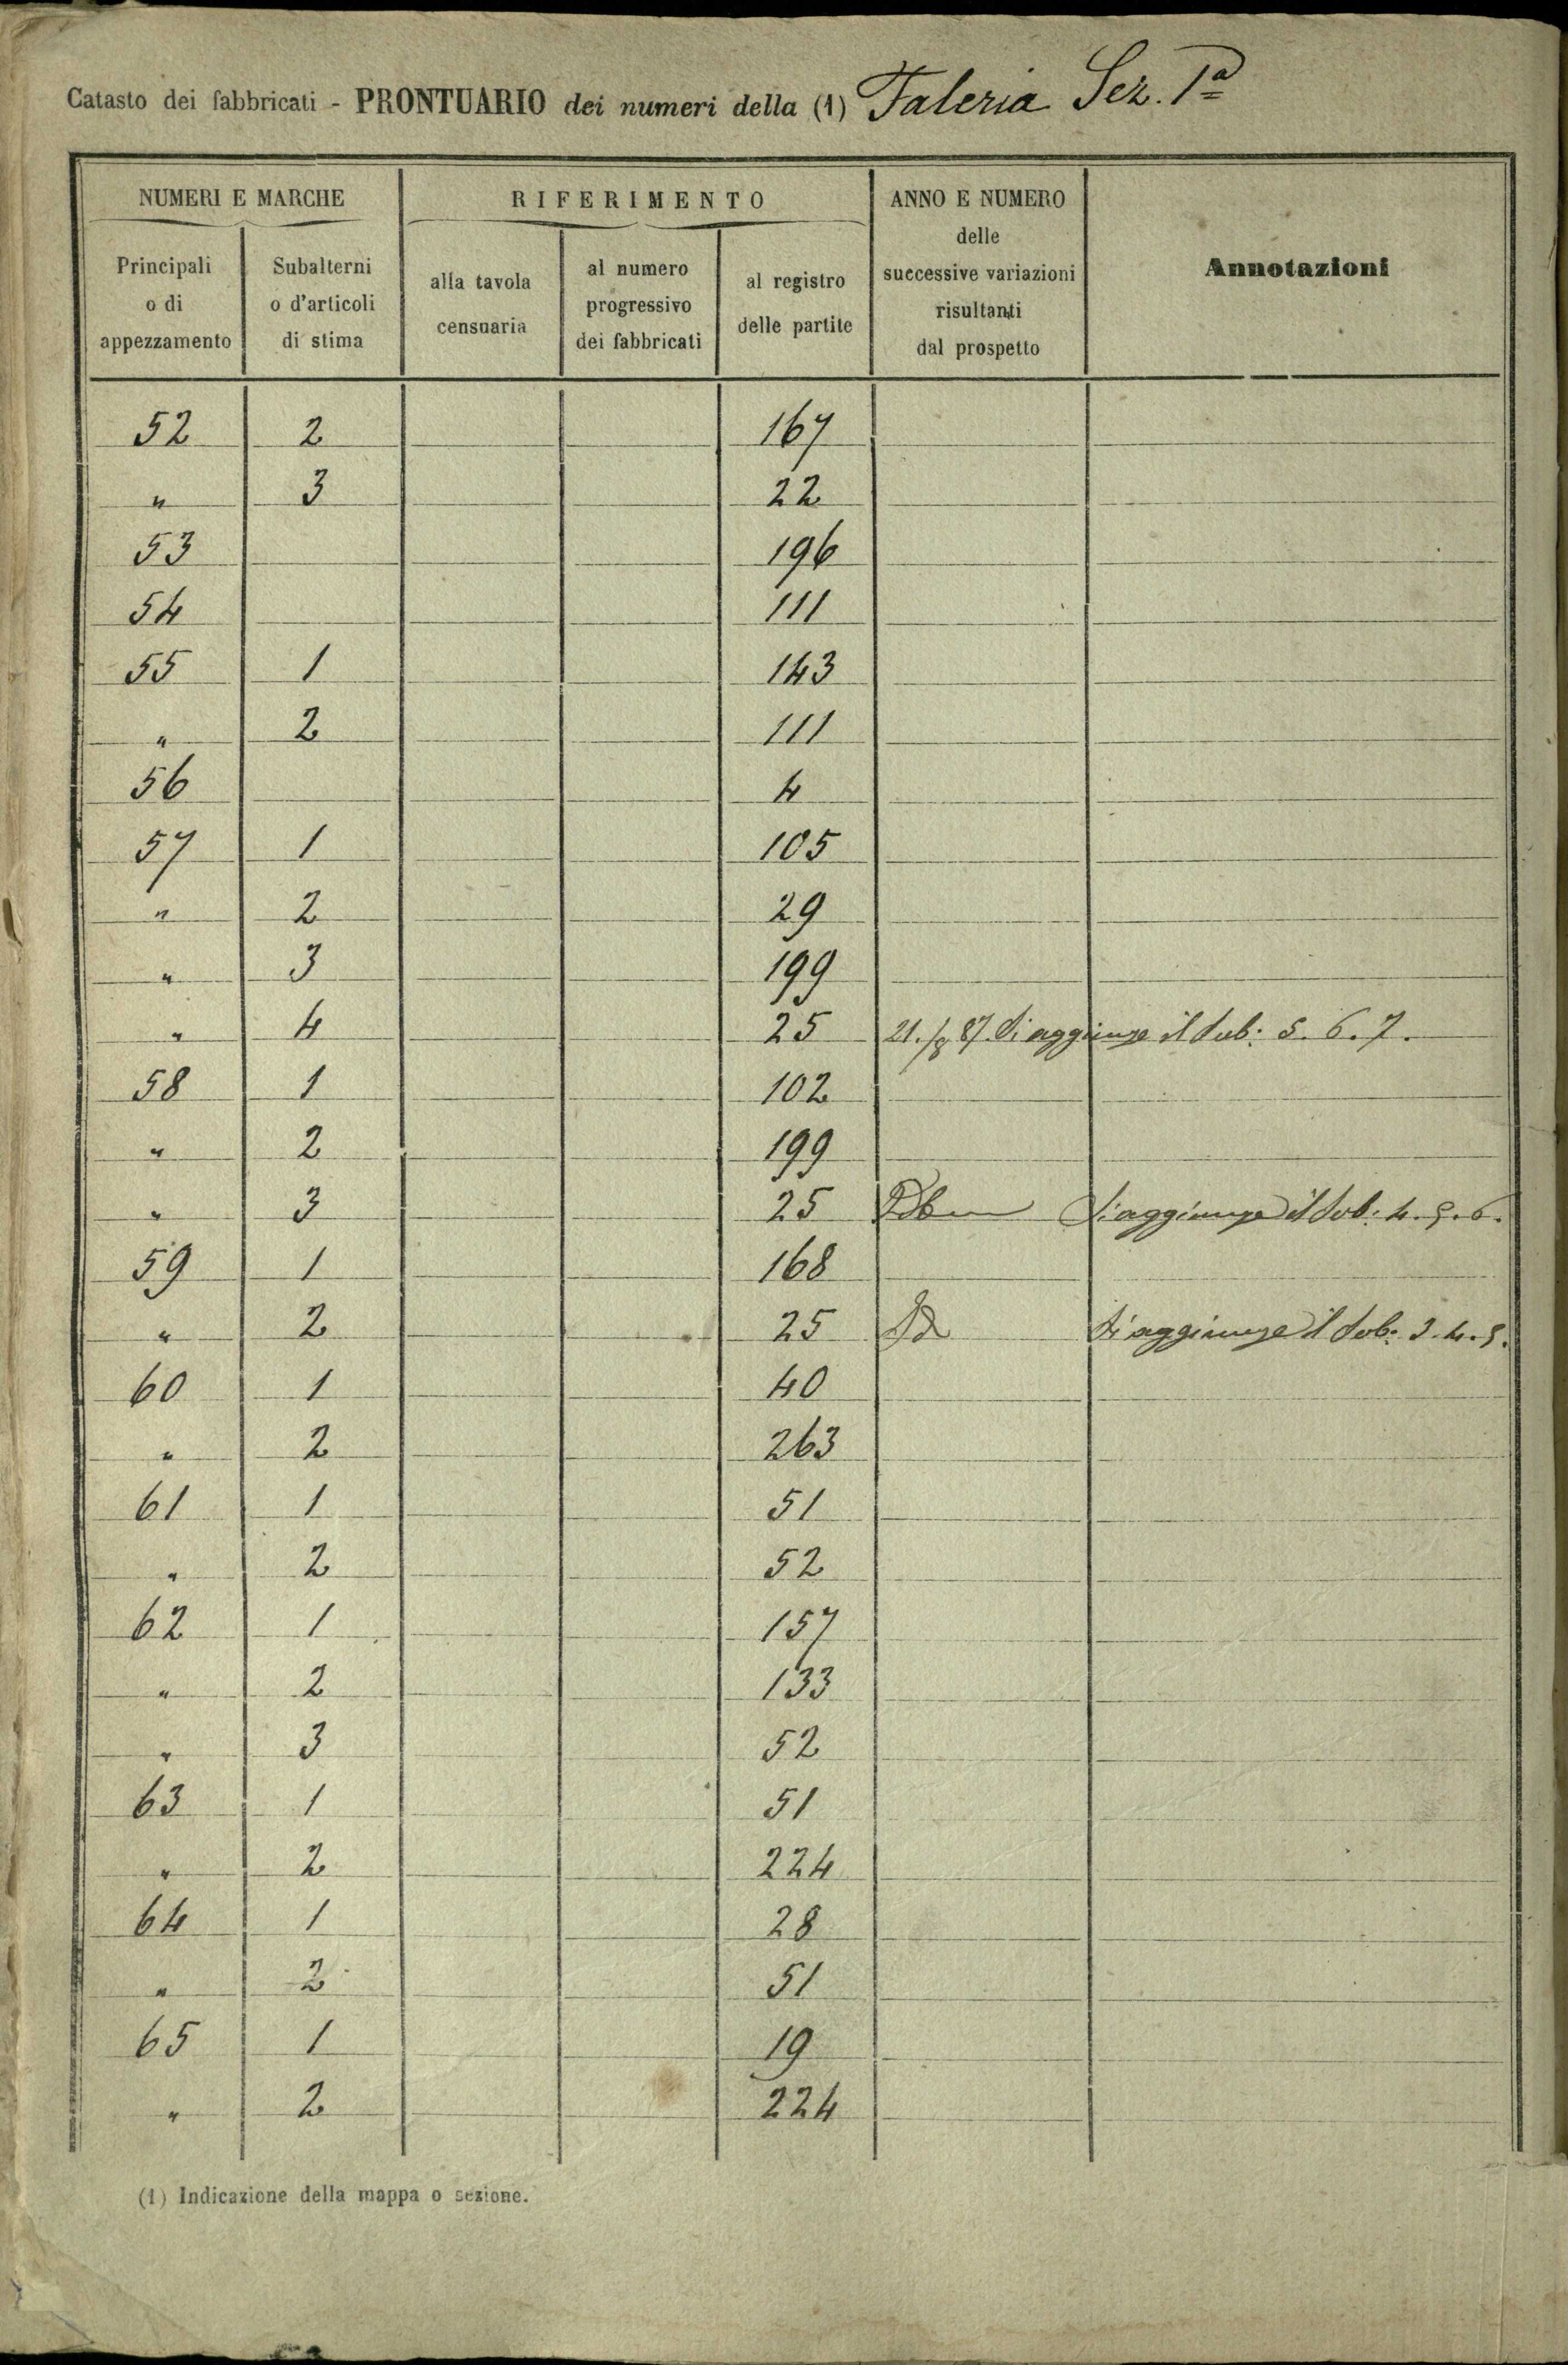 Catasto dei fabbricati - PRONTUARIO dei numeri della (1) Faleria Sez. 1ª
NUMERI E MARCHE
RIFERIMENTO
ANNO E NUMERO
delle
successive variazioni
risultanti
dal prospetto
Annotazioni
Principali
o di
appezzamento
Subalterni
o d'articoli
di stima
alla tavola
censuaria
al numero
progressivo
dei fabbricati
al registro
delle partite
52 2 167
" 3 22
53 196
54 111
55 1 143
" 2 111
56 4
57 1 105
" 2 29
" 3 199
" 4 25 21./8 87. Si aggiunge il sub: 5. 6. 7.
58 1 102
" 2 199
" 3 25 Si aggiunge il sub: 4. 5. 6.
59 1 168
" 2 25 Id Si aggiunge il sub: 3. 4. 5.
60 1 40
" 2 263
61 1 51
" 2 52
62 1 157
" 2 133
" 3 52
63 1 51
" 2 224
64 1 28
" 2 51
65 1 19
" 2 224
(1) Indicazione della mappa o sezione.